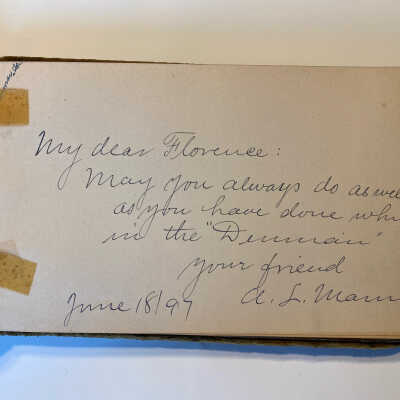 My dear Florence:
May you always do as well
as you have done whi
in the "Denman"
your friend
A. L. Mann
June 18/97